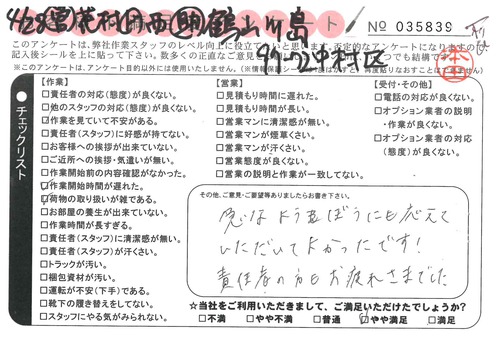 4/28 花村 西 鶴山 川島
ート №035839
99-02 中村区
このアンケートは、弊社作業スタッフのレベル向上に役立て
記入後シールを上に貼って下さい。数多くの正直なご意見を
※このアンケートは、アンケート目的以外には使用いたしません。
チェックリスト
【作業】
□責任者の対応(態度)が良くない。
□他のスタッフの対応(態度)が良くない。
□作業を見ていて不安がある。
□責任者(スタッフ)に好感が持てない。
□お客様への挨拶が出来ていない。
□ご近所への挨拶・気遣いが無い。
□作業開始前の内容確認がなかった。
□作業開始時間が遅れた。
□荷物の取り扱いが雑である。
□お部屋の養生が出来ていない。
□作業時間が長すぎる。
□責任者(スタッフ)に清潔感が無い。
□責任者(スタッフ)が汗くさい。
□トラックが汚い。
□梱包資材が汚い。
□運転が不安(下手)である。
□靴下の履き替えをしてない。
□スタッフにやる気がみられない。
【営業】
□見積もり時間に遅れた。
□見積もり時間が長い。
□営業マンに清潔感が無い。
□営業マンが煙草くさい。
□営業マンが汗くさい。
□営業態度が良くない。
□営業の説明と作業が一致してない。
【受付・その他】
□電話の対応が良くない。
□オプション業者の説明
・作業が良くない。
□オプション業者の対応
(態度)が良くない。
その他、ご意見・ご要望等ありましたらお書き下さい。
急なようぼうにも応えて
いただいてよかったです!
責任者の方もお疲れさまでした
☆当社をご利用いただきまして、ご満足いただけたでしょうか?
□不満 □やや不満 □普通 □やや満足 □満足